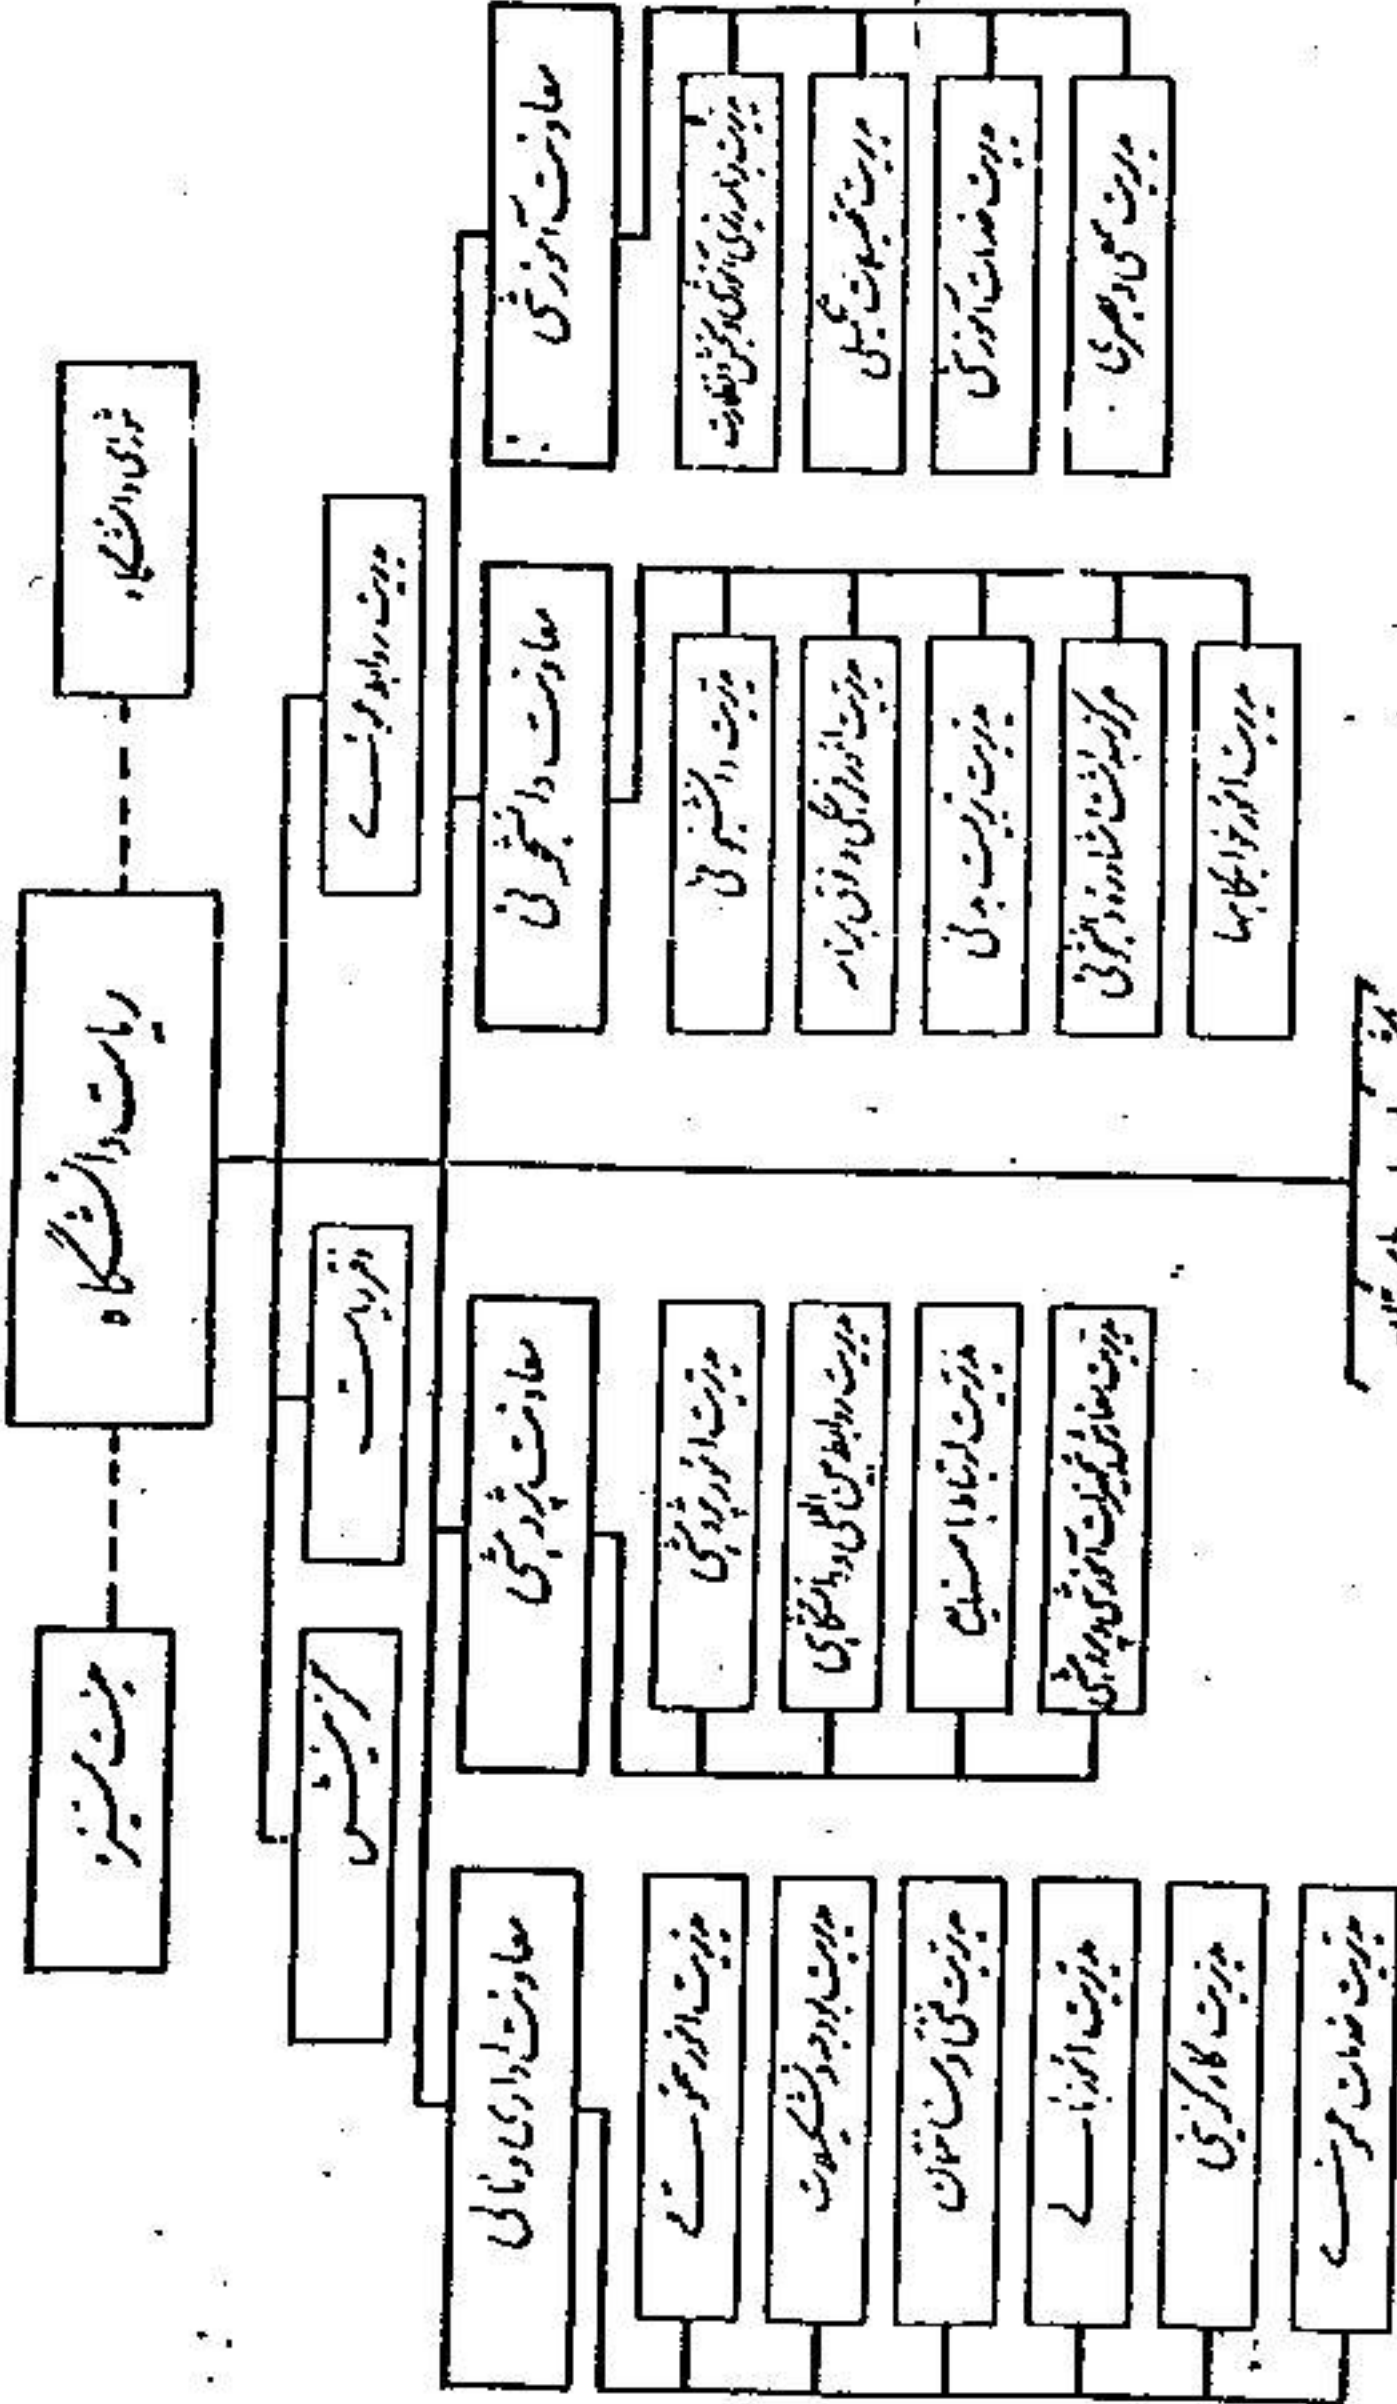 ریاست دانشگاه
شورای دانشگاه
هیئت ممیزه
مدیریت روابط عمومی
دفتر ریاست
مرکز گزینش
معاونت آموزشی
مدیریت برنامه‌ریزی آموزشی و گسترش و نظارت
مدیریت تحصیلات تکمیلی
مدیریت خدمات آموزشی
مدیریت سمعی و بصری
معاونت دانشجوئی
مدیریت دانشجوئی
مدیریت امور فرهنگی و فوق برنامه
مدیریت تربیت بدنی
مرکز بهداشت و مشاوره دانشجوئی
مدیریت امور خوابگاهها
معاونت پژوهشی
مدیریت امور پژوهشی
مدیریت روابط بین المللی و دانشگاهی
مدیریت ارتباط با صنایع
مدیریت تجهیزات آموزشی و پژوهشی
معاونت اداری و مالی
مدیریت امور حقوقی
مدیریت بودجه و تشکیلات
مدیریت فنی و ساختمان
مدیریت امور مالی
مدیریت کارگزینی
مدیریت خدمات عمومی